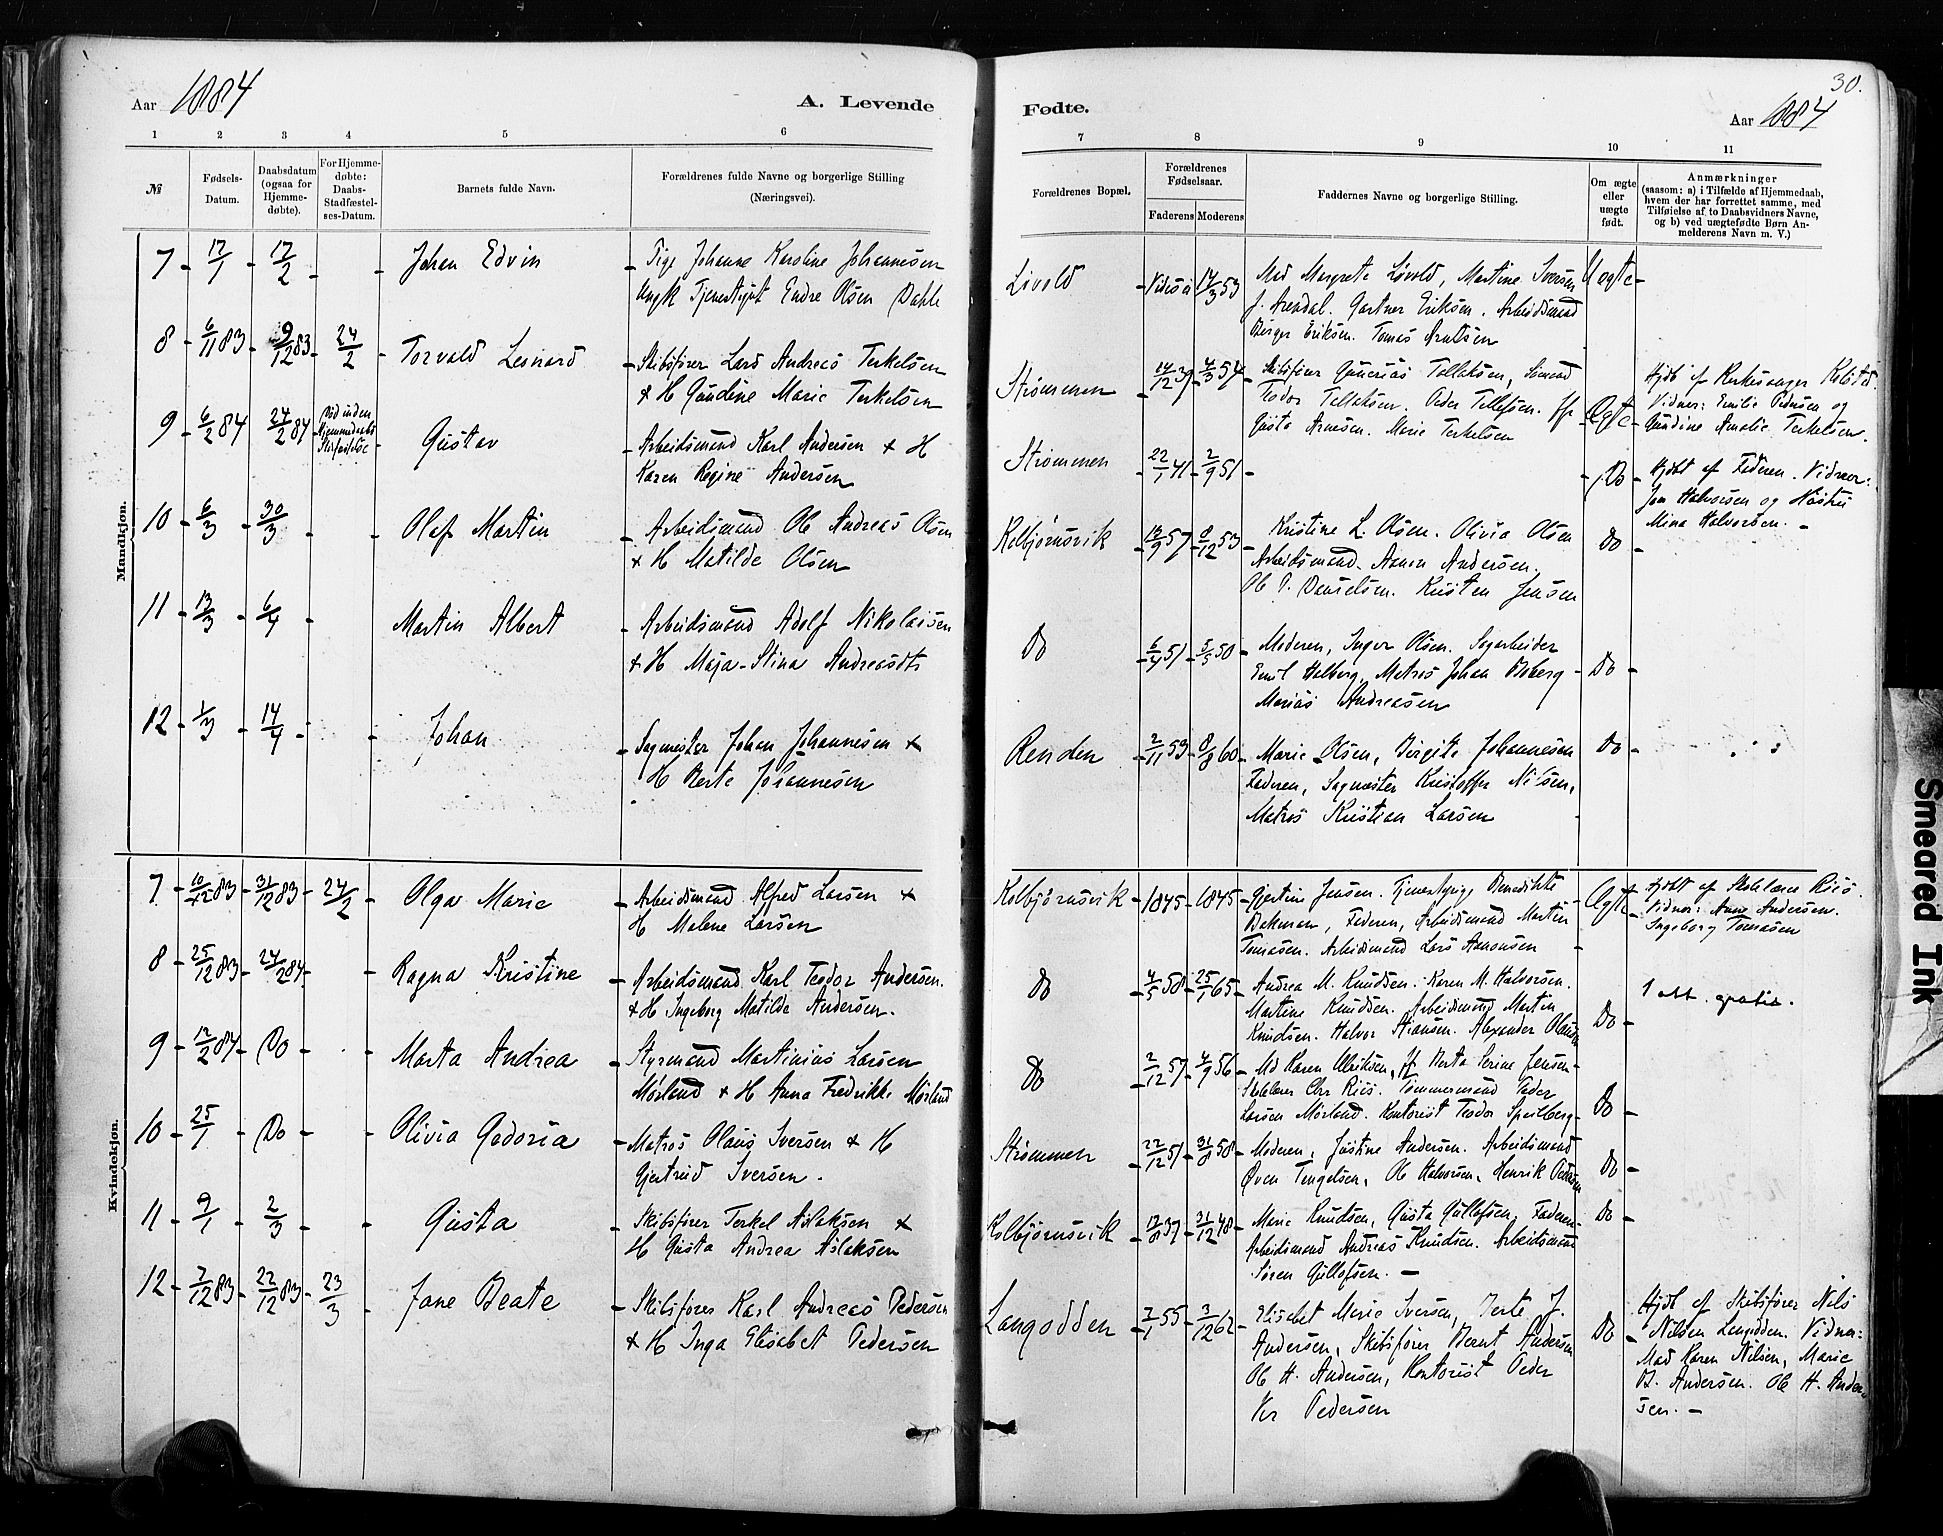 Aar 1884
A. Levende
Fødte.
30.
Aar 1884
1 2 3 4 5 6
7 8 9 10 11
№
Fødsels-
Datum.
Daabsdatum
(ogsaa for
Hjemme-
døbte).
For Hjemme-
døbte:
Daabs-
Stadfæstel-
ses-Datum.
Barnets fulde Navn.
Forældrenes fulde Navne og borgerlige Stilling
(Næringsvei).
Forældrenes Bopæl.
Forældrenes
Fødselsaar.
Faderens
Moderens
Faddernes Navne og borgerlige Stilling.
Om ægte
eller
uægte
født.
Anmærkninger
(saasom: a) i Tilfælde af Hjemmedaab,
hvem der har forrettet samme, med
Tilføielse af to Daabsvidners Navne,
og b) ved uægtefødte Børn An-
melderens Navn m. V.)
Mandkjøn.
7 - 17/1 - 17/2 - - Johan Edvin
- Pige Johanne Karoline Johannesen
Ungk Tjenestgut Endre Olsen Dahle
Livold
17/3 53
Mad Margrete Livold, Martine Iversen
f. Arendal. Gartner Eriksen. Arbeidsmand
Børger Eriksen. Tomas Arntsen
Uægte -
8 - 6/11 83 - 9/12 83 - 24/2 - Torvald Leonard
- Skibsfører Lars Andreas Terkelsen
& H Gundine Marie Terkelsen
Strømmen - 14/12 39 - 4/3 54
- Skibsfører Gunerius Tellefsen, Sømand
Teodor Tellefsen. Peder Tellefsen. Jfr
Gusta Arnesen. Marie Terkelsen
Ægte -
Hjdbt af Kirkesanger Kolstad.
Vidner: Emilie Pedersen og
Gundine Amalie Terkelsen.
9 - 6/2 84 - 24/2 84 - Død inden
Hjemmedaabs
Stadfæstelse
- Gustav
- Arbeidsmand Karl Andersen & H
Karen Regine Andersen
Strømmen - 22/1 41 - 2/9 51 -
- Do
- Hjdbt af Faderen. Vidner:
Jon Halvorsen og Hustru
Mina Halvorsen. -
10 - 6/3 - 30/3 - - Olaf Martin
- Arbeidsmand Ole Andreas Olsen
& H Matilde Olsen
Kolbjørnsvik - 18/9 57 - 8/12 53
Kristine L. Olsen. Olivia Olsen
Arbeidsmand Aanon Andersen.
Ole P. Danielsen. Kristen Jensen
Do -
11 - 13/3 - 6/4 - - Martin Albert
- Arbeidsmand Adolf Nikolaisen
& H Maja-Stina Andreasdtr
Do - 6/4 51 - 5/5 50
- Moderen, Inger Olsen. Sagarbeider
Emil Halberg, Matros Johan Boberg -
Marius Andreasen
Do -
12 - 1/3 - 14/4 - - Johan
- Sagmester Johan Johannesen &
H Berte Johannesen
Renden - 2/11 53 - 8/8 60
- Marie Olsen, Birgite Johannesen
Faderen, Sagmester Kristoffer Nilsen,
Matros Kristian Larsen
Do -
Kvindekjøn.
7 - 10/12 83 - 31/12 83 - 24/2 - Olga Marie
- Arbeidsmand Alfred Larsen &
H Malene Larsen
Kolbjørnsvik - 1845 - 1845
- Gjertine Jensen. Tjenestpige Benedikte
Bakman, Faderen, Arbeidsmand Martin
Tomasen. Arbeidsmand Lars Aanonsen
Ægte
- Hjdbt af Skolelærer Riis.
Vidner: Anne Andersen.
Ingeborg Tomasen
8 - 25/12 83 - 24/2 84 - - Ragna Kristine
- Arbeidsmand Karl Teodor Andersen.
& H Ingeborg Matilde Andersen.
Do - 4/5 58 - 25/1 65
- Andrea M. Knudsen. Karen M. Halvorsen.
Martine Knudsen. Arbeidsmand Martin
Knudsen. Halvor Stiansen. Alexander Olausen
Do -
1 att. gratis.
9 - 12/2 84 - Do - - Marta Andrea
- Styrmand Martinius Larsen
Mørland & H Anna Fredrikke Mørland
Do - 2/12 57 - 4/9 56
- Md Karen Ulriksen, Jf Berta Serine Jensen-
Skolelærer Chr Riis. Tømmermand Peder
Larsen Mørland. Kontorist Teodor Speilberg -
Do -
10 - 25/1 - Do - - Olivia Gedoria
- Matros Olaus Iversen & H
Gjertrud Iversen.
Strømmen - 22/12 51 - 31/8 58
- Moderen, Justine Andersen. Arbeidsmand
Øven Tengelsen, Ole Halvorsen, Henrik Pedersen
Do -
11 - 9/1 - 2/3 - - Gusta
- Skibsfører Terkel Aslaksen &
H Gusta Andrea Aslaksen
Kolbjørnsvik - 12/8 37 - 31/12 48
- Marie Knudsen, Gusta Gullofsen, Faderen-
Arbeidsmand Andreas Knudsen. Arbeidsmand
Søren Gullofsen. -
Do -
12 - 7/12 83 - 22/12 83 - 23/3 - Jane Beate
- Skibsfører Karl Andreas Pedersen
& H Inga Elisabet Pedersen
Langodden - 2/1 55 - 3/12 62
- Elisabet Marie Iversen, Berte J.
Andersen, Skibsfører Bernt Andersen
Ole H. Andersen, Kontorist Peder
Kr Pedersen
Do
Hjdbt af Skibsfører Nils
- Nilsen Langodden. Vidner:
Mad Karen Nilsen, Marie
B. Andersen. Ole H. Ander-
sen. -
Smeared Ink